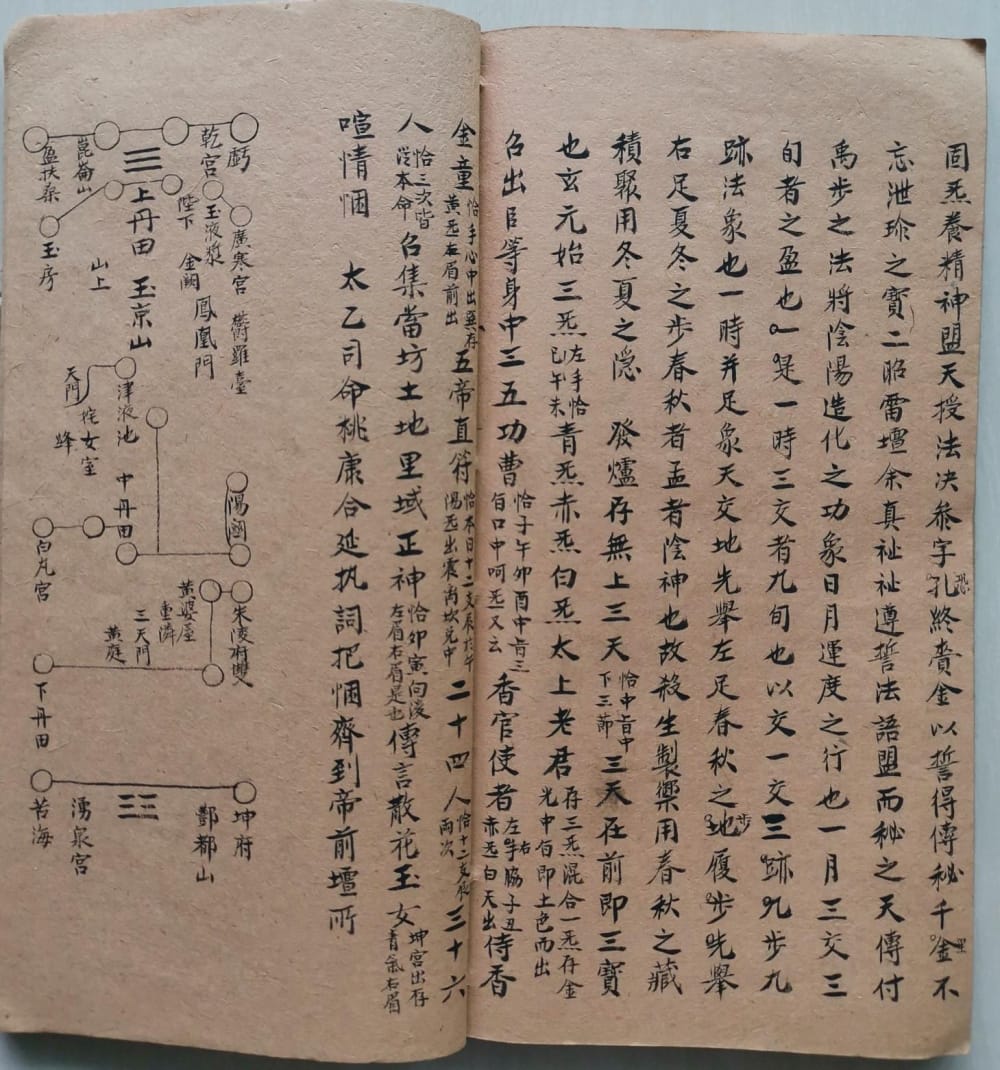 固炁養精神盟天授法决叅字孔恐終賫金以誓得傳秘千金里不
忘泄珎之寳二昭雷壇余真祉祉遵誓法語盟而秘之天傳付
禹步之法將陰陽造化之功象日月運度之行也一月三交三
旬者之盈也一是一時三交者九旬也以交一交三跡九步九
跡法象也一時并足象天交地先舉左足春秋之地步履步先舉
右足夏冬之步春秋者孟者陰神也故殺生製藥用春秋之藏
積聚用冬夏之隱 發爐存無上三天恰中旨中下三節三天在前即三寳
也玄元始三炁左手恰巳午未青炁赤炁白炁太上老君存三炁混合一炁存金光中旨即土色而出
召出臣等身中三五功曹恰子午卯酉中旨三旨口中呵炁又云香官使者左手右脇子丑赤炁白天出侍香
金童恰手心中出存黄炁在眉前出五帝直符恰本日十二支辰於午陽炁出震离坎兑中二十四人恰十二支辰兩次三十六
人恰三次皆從本命召集當坊土地里域正神恰卯寅向後左眉右眉是也傳言散花玉女坤宫出存青氣右眉
喧情悃 太乙司命桃康合延执詞把悃齊到帝前壇所
虧
乾宫
崑崙山
盈扶桑
廣寒宫
玉液漿
陛下
上丹田
玉房
欝羅臺
鳳凰門
金闕
玉京山
山上
津液池
天門
姹女室
絳
中丹田
陽關
白丸宫
朱陵府雙
黄婆屋
重
三天門
黄庭
下丹田
坤府
酆都山
湧泉宫
苦海